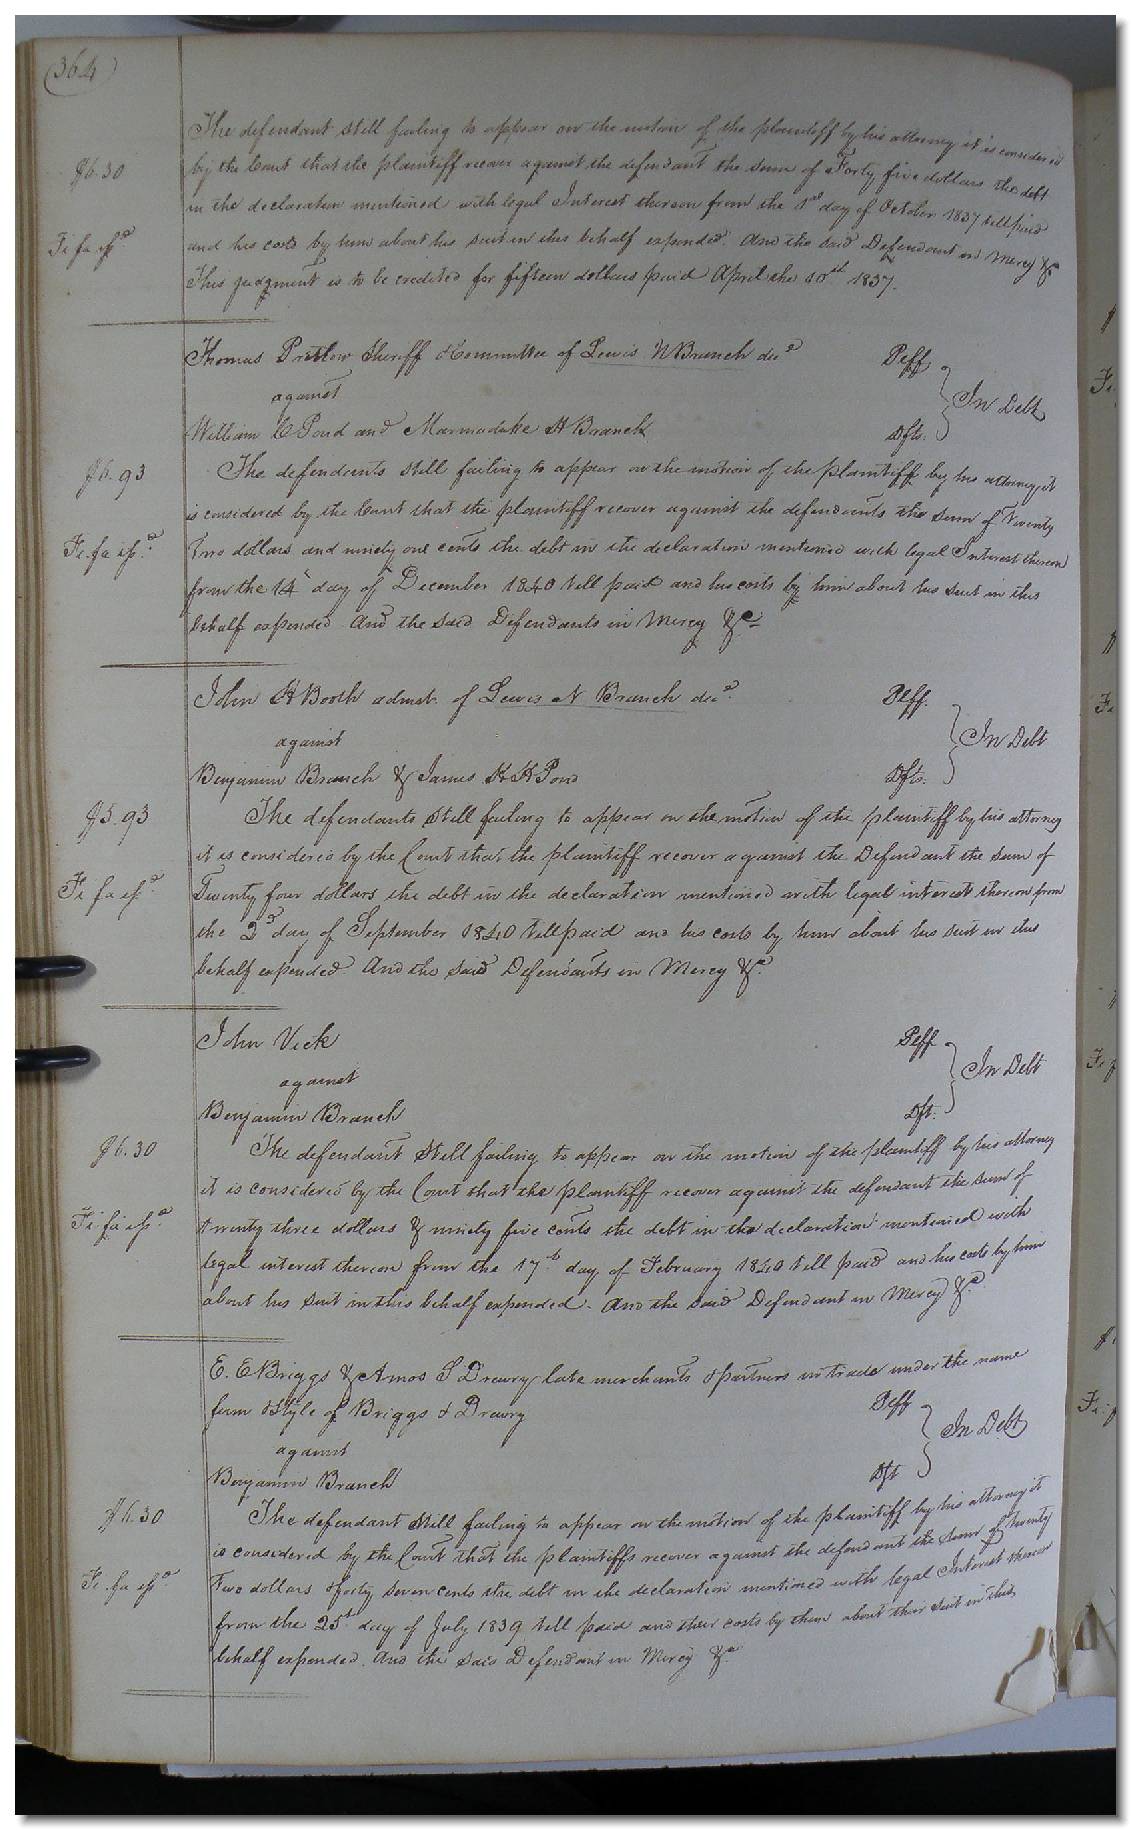 (364)
The defendant still failing to appear on the motion of the plaintiff by his attorney it is considered
$6.30
by the Court that the plaintiff recover against the defendant the sum of Forty five dollars the debt
in the declaration mentioned with legal Interest thereon from the 1st day of October 1837 till paid
Fi fa issd
and his costs by him about his suit in this behalf expended. And the said Defendant in Mercy &c
This judgment is to be credited for fifteen dollars paid April the 10th 1837.
Thomas Pretlow Sheriff & Committee of Lewis N Branch decd Plff
against
In Debt
William C Pond and Marmaduke H Branch Dfts.
$6.93
The defendants still failing to appear on the motion of the plaintiff by his attorney it
is considered by the Court that the plaintiff recover against the defendants the sum of Twenty
Fi. fa issd
Two dollars and ninety one cents the debt in the declaration mentioned with legal Interest thereon
from the 14th day of December 1840 till paid and his costs by him about his suit in this
behalf expended And the said Defendants in Mercy &c
John H Booth admst. of Lewis N Branch decd. Plff.
against
In Debt
Benjamin Branch & James H H Pond Dfts.
$5.93
The defendants still failing to appear on the motion of the plaintiff by his attorney
it is considered by the Court that the plaintiff recover against the Defendant the sum of
Fi fa issd
Twenty four dollars the debt in the declaration mentioned with legal interest thereon from
the 2d day of September 1840 till paid and his costs by him about his suit in this
behalf expended And the said Defendants in Mercy &c.
John Vick Plff
against
In Debt
Benjamin Branch Dft.
$6.30
The defendant still failing to appear on the motion of the plaintiff by his attorney
it is considered by the Court that the plaintiff recover against the defendant the sum of
Fi fa issd
twenty three dollars & ninety five cents the debt in the declaration mentioned with
legal interest thereon from the 17th day of February 1840 till paid and his costs by him
about his suit in this behalf expended. And the said Defendant in Mercy &c
E. E Briggs & Amos S Drewry late merchants & partners in trade under the name
firm & Style of Briggs & Drewry Plff
against
In Debt
Benjamin Branch Dft
$6.30
The defendant still failing to appear on the motion of the plaintiff by his attorney it
is considered by the Court that the plaintiffs recover against the defendant the sum of twenty
Fi. fa issd
Two dollars & forty seven cents the debt in the declaration mentioned with legal Interest thereon
from the 25th day of July 1839 till paid and their costs by them about their suit in this
behalf expended. And the said Defendant in Mercy &c